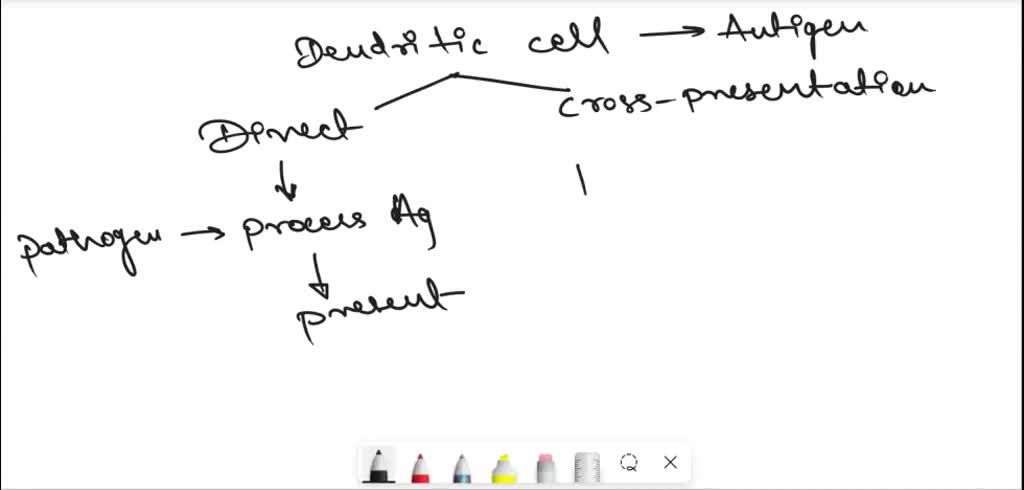 Dendritic cell → Antigen
Direct
cross-presentation
pathogen → process Ag
present